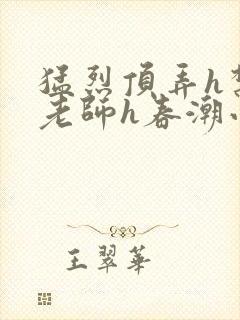 猛烈頂弄h
老師h春潮
王翠華